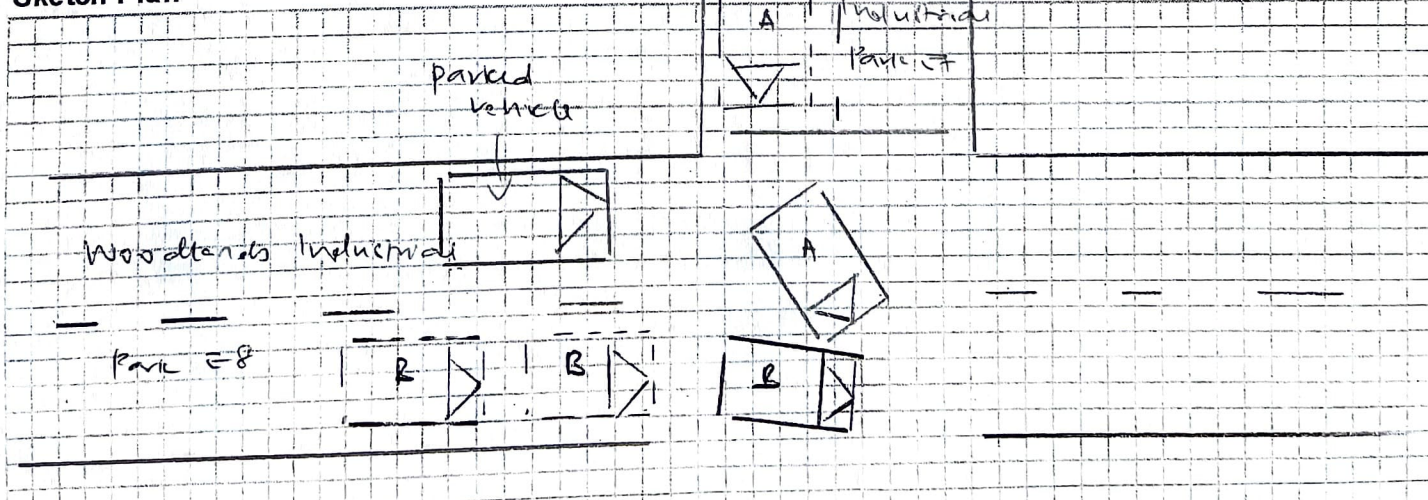 Sketch Plan
A
Industrial
Park E7
parked
vehicle
A
Woodlands Industrial
Park E8
B
B
B